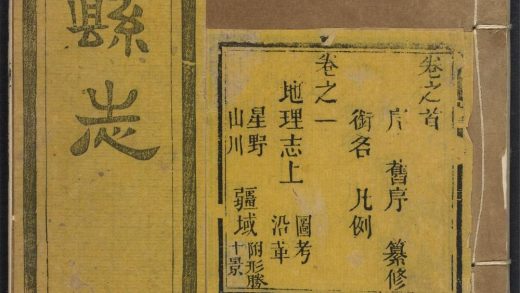 卷之首
序 舊序 纂修
銜名 凡例
卷之一
地理志上 圖考
沿革
星野 疆域 附形勝
山川 十景
縣志